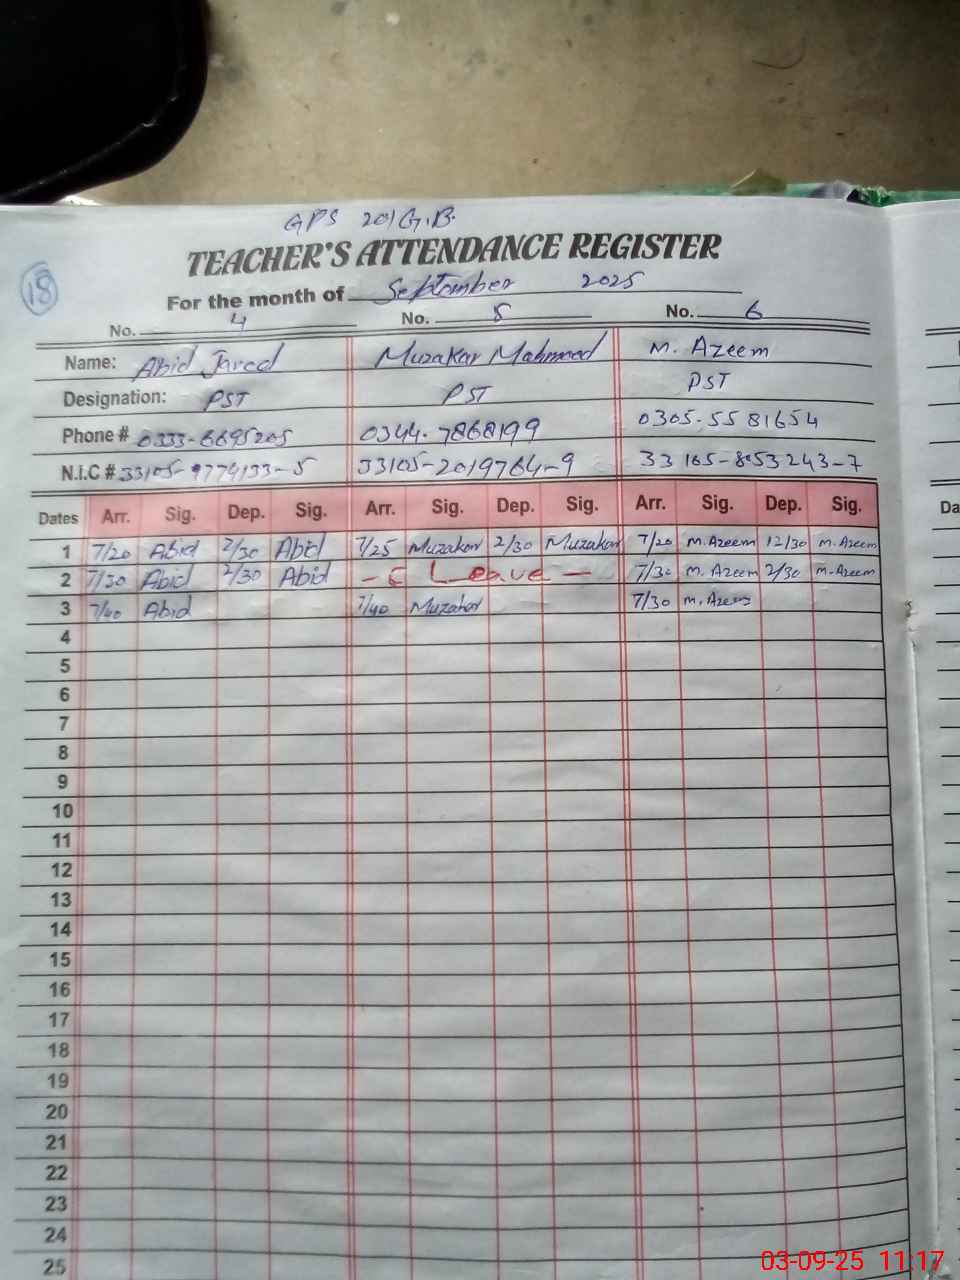 GPS 201 G.B.
TEACHER'S ATTENDANCE REGISTER
18
For the month of September 2025
No. 4 No. 5 No. 6
Name: Abid Javed Muzakar Mahmood M. Azeem
Designation: PST PST PST
Phone # 0333-6695205 0344-7868199 0305-5581654
N.I.C # 33105-9774133-5 33105-2019764-9 33105-853243-7
Dates Arr. Sig. Dep. Sig. Arr. Sig. Dep. Sig. Arr. Sig. Dep. Sig. Da
1 7/20 Abid 2/30 Abid 7/25 Muzakar 2/30 Muzakar 7/20 M.Azeem 12/30 M.Azeem
2 7/30 Abid 2/30 Abid - C Leave - 7/30 M.Azeem 2/30 M.Azeem
3 7/40 Abid 7/40 Muzakar 7/30 M.Azeem
4
5
6
7
8
9
10
11
12
13
14
15
16
17
18
19
20
21
22
23
24
25
03-09-25 11:17